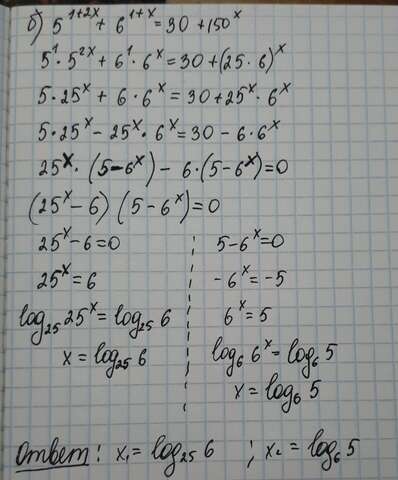 б) 5^(1+2x) + 6^(1+x) = 30 + 150^x
5^1 · 5^(2x) + 6^1 · 6^x = 30 + (25 · 6)^x
5 · 25^x + 6 · 6^x = 30 + 25^x · 6^x
5 · 25^x − 25^x · 6^x = 30 − 6 · 6^x
25^x · (5 − 6^x) − 6 · (5 − 6^x) = 0
(25^x − 6) (5 − 6^x) = 0
25^x − 6 = 0
25^x = 6
log₂₅ 25^x = log₂₅ 6
x = log₂₅ 6
5 − 6^x = 0
−6^x = −5
6^x = 5
log₆ 6^x = log₆ 5
x = log₆ 5
Ответ: x₁ = log₂₅ 6 ; x₂ = log₆ 5